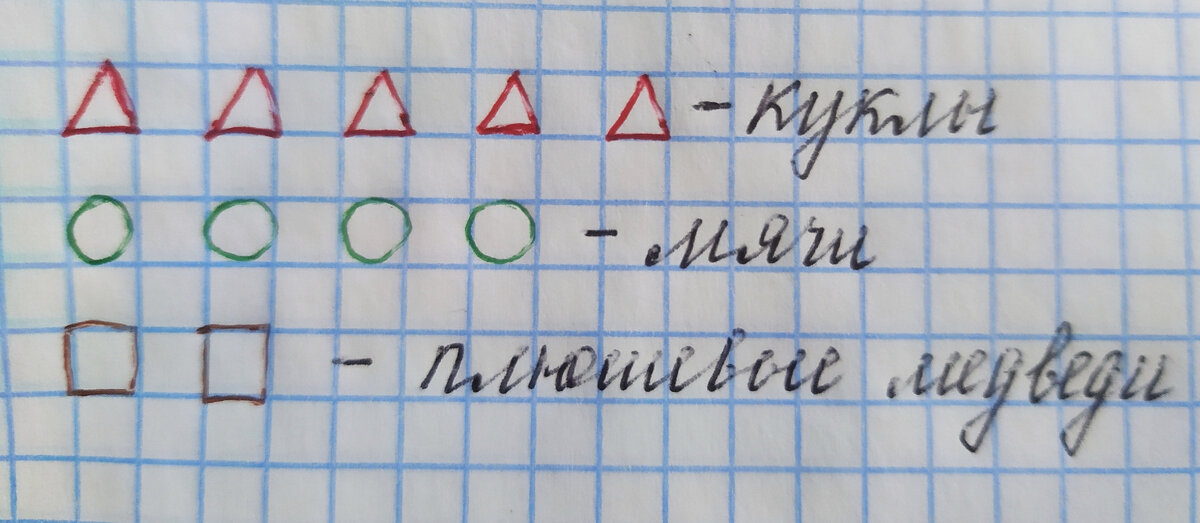 - куклы
- мячи
- плюшевые медведи